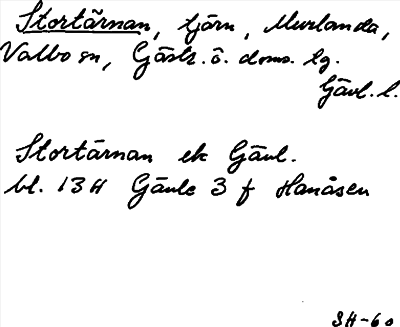 Stortärnan, tjärn, Murlanda,
Valbo sn, Gästr. ö. doms. tg.
Gävl. l.
Stortärnan ek Gävl.
bl. 13H Gävle 3 f Hanåsen
SH-60